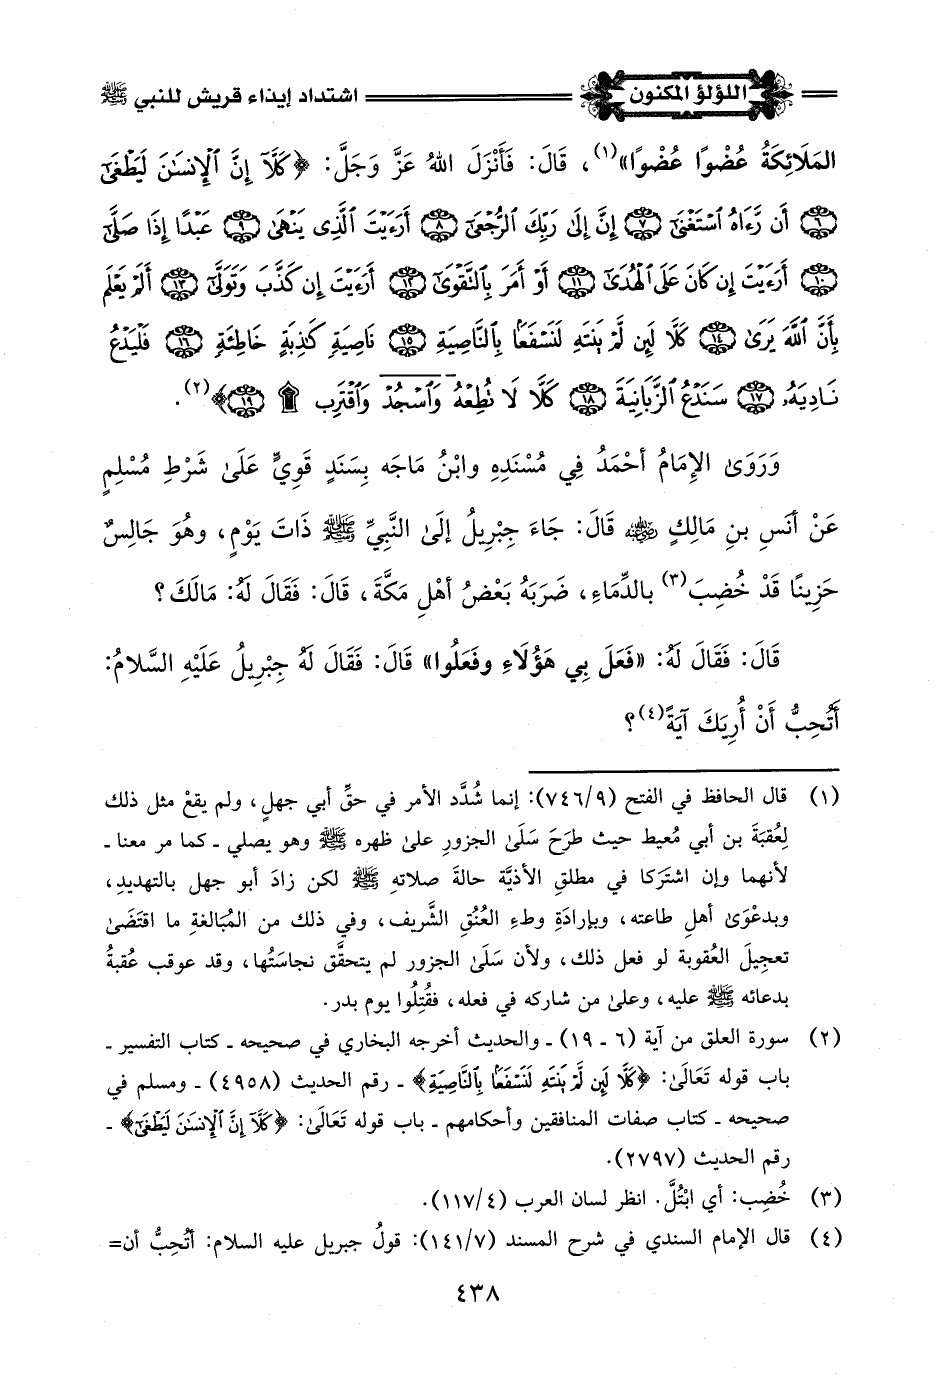 اللؤلؤ المكنون اشتداد إيذاء قريش للنبي ﷺ
المَلَائِكَةُ عُضْوًا عُضْوًا»(١)، قَالَ: فَأَنْزَلَ اللهُ عَزَّ وَجَلَّ: ﴿كَلَّآ إِنَّ ٱلْإِنسَٰنَ لَيَطْغَىٰٓ
﴿٦﴾ أَن رَّءَاهُ ٱسْتَغْنَىٰٓ ﴿٧﴾ إِنَّ إِلَىٰ رَبِّكَ ٱلرُّجْعَىٰٓ ﴿٨﴾ أَرَءَيْتَ ٱلَّذِى يَنْهَىٰ ﴿٩﴾ عَبْدًا إِذَا صَلَّىٰٓ
﴿١٠﴾ أَرَءَيْتَ إِن كَانَ عَلَى ٱلْهُدَىٰٓ ﴿١١﴾ أَوْ أَمَرَ بِٱلتَّقْوَىٰٓ ﴿١٢﴾ أَرَءَيْتَ إِن كَذَّبَ وَتَوَلَّىٰٓ ﴿١٣﴾ أَلَمْ يَعْلَم
بِأَنَّ ٱللَّهَ يَرَىٰ ﴿١٤﴾ كَلَّا لَئِن لَّمْ يَنتَهِ لَنَسْفَعًۢا بِٱلنَّاصِيَةِ ﴿١٥﴾ نَاصِيَةٍ كَٰذِبَةٍ خَاطِئَةٍ ﴿١٦﴾ فَلْيَدْعُ
نَادِيَهُۥ ﴿١٧﴾ سَنَدْعُ ٱلزَّبَانِيَةَ ﴿١٨﴾ كَلَّا لَا تُطِعْهُ وَٱسْجُدْ وَٱقْتَرِب ۩ ﴿١٩﴾﴾(٢).
وَرَوَىٰ الإِمَامُ أَحْمَدُ فِي مُسْنَدِهِ وابْنُ مَاجَه بِسَنَدٍ قَوِيٍّ عَلَىٰ شَرْطِ مُسْلِمٍ
عَنْ أَنَسِ بنِ مَالِكٍ رضي الله عنه قَالَ: جَاءَ جِبْرِيلُ إِلَىٰ النَّبِيِّ ﷺ ذَاتَ يَوْمٍ، وهُوَ جَالِسٌ
حَزِينًا قَدْ خُضِبَ(٣) بالدِّمَاءِ، ضَرَبَهُ بَعْضُ أَهْلِ مَكَّةَ، قَالَ: فَقَالَ لَهُ: مَالَكَ؟
قَالَ: فَقَالَ لَهُ: «فَعَلَ بِي هَؤُلَاءِ وفَعَلُوا» قَالَ: فَقَالَ لَهُ جِبْرِيلُ عَلَيْهِ السَّلَامُ:
أَتُحِبُّ أَنْ أُرِيَكَ آيَةً(٤)؟
(١) قال الحافظ في الفتح (٧٤٦/٩): إنما شُدَّد الأمر في حقِّ أبي جهلٍ، ولم يقعْ مثل ذلك
لِعُقبَةَ بن أبي مُعيط حيث طرَحَ سَلَىٰ الجزورِ علىٰ ظهره ﷺ وهو يصلي ـ كما مر معنا ـ
لأنهما وإن اشترَكا في مطلقِ الأذيَّة حالةَ صلاتهِ ﷺ لكن زادَ أبو جهل بالتهديدِ،
وبدعْوَىٰ أهلِ طاعته، وبإرادَةِ وطءِ العُنُقِ الشَّريف، وفي ذلك من المُبَالغةِ ما اقتَضَىٰ
تعجِيلَ العُقوبة لو فعل ذلك، ولأن سَلَىٰ الجزور لم يتحقَّق نجاسَتُها، وقد عوقب عُقبةُ
بدعائه ﷺ عليه، وعلىٰ من شاركه في فعله، فقُتِلُوا يوم بدر.
(٢) سورة العلق من آية (٦ ـ ١٩) ـ والحديث أخرجه البخاري في صحيحه ـ كتاب التفسير ـ
باب قوله تَعَالَىٰ: ﴿كَلَّا لَئِن لَّمْ يَنتَهِ لَنَسْفَعًۢا بِٱلنَّاصِيَةِ﴾ ـ رقم الحديث (٤٩٥٨) ـ ومسلم في
صحيحه ـ كتاب صفات المنافقين وأحكامهم ـ باب قوله تَعَالَىٰ: ﴿كَلَّآ إِنَّ ٱلْإِنسَٰنَ لَيَطْغَىٰٓ﴾ ـ
رقم الحديث (٢٧٩٧).
(٣) خُضِب: أي ابْتُلَّ. انظر لسان العرب (١١٧/٤).
(٤) قال الإمام السندي في شرح المسند (١٤١/٧): قولُ جبريل عليه السلام: أَتُحِبُّ أن=
٤٣٨